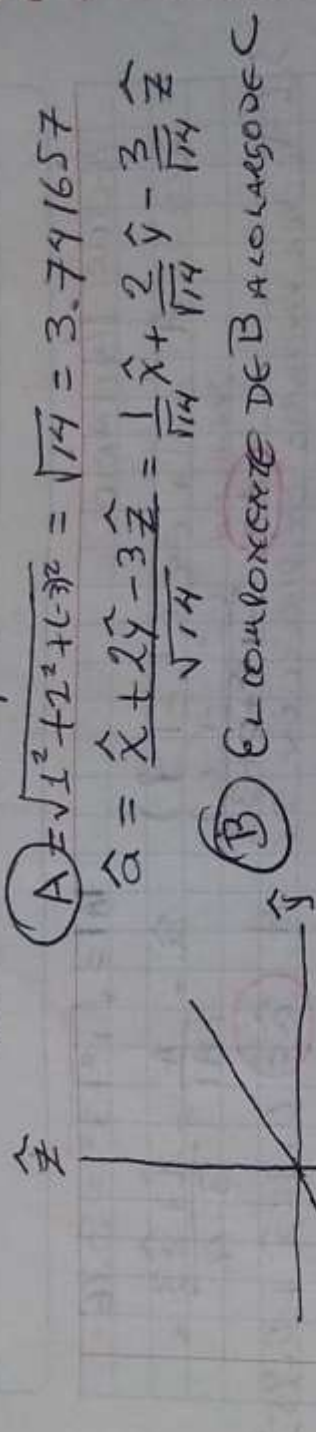 (A) = √1²+2²+(-3)² = √14 = 3.741657
â = x̂ + 2ŷ - 3ẑ / √14 = 1/√14 x̂ + 2/√14 ŷ - 3/√14 ẑ
(B) EL COMPONENTE DE B A LO LARGO DE C
ẑ
ŷ